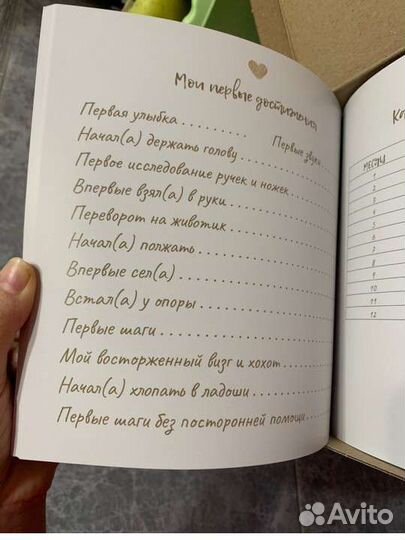 Мои первые достижения
Первая улыбка . . . . . . . . . Первые звуки
Начал(а) держать голову . . . . . . . . . . . . .
Первое исследование ручек и ножек . . . . . .
Впервые взял(а) в руки . . . . . . . . . . . . . . .
Переворот на животик . . . . . . . . . . . . . . .
Начал(а) ползать . . . . . . . . . . . . . . . . . . .
Впервые сел(а) . . . . . . . . . . . . . . . . . . . . .
Встал(а) у опоры . . . . . . . . . . . . . . . . . . .
Первые шаги . . . . . . . . . . . . . . . . . . . . . . .
Мой восторженный визг и хохот . . . . . . . .
Начал(а) хлопать в ладоши . . . . . . . . . . . .
Первые шаги без посторонней помощи . . . .
МЕСЯЦ
1
2
3
4
5
6
7
8
9
10
11
12
Avito